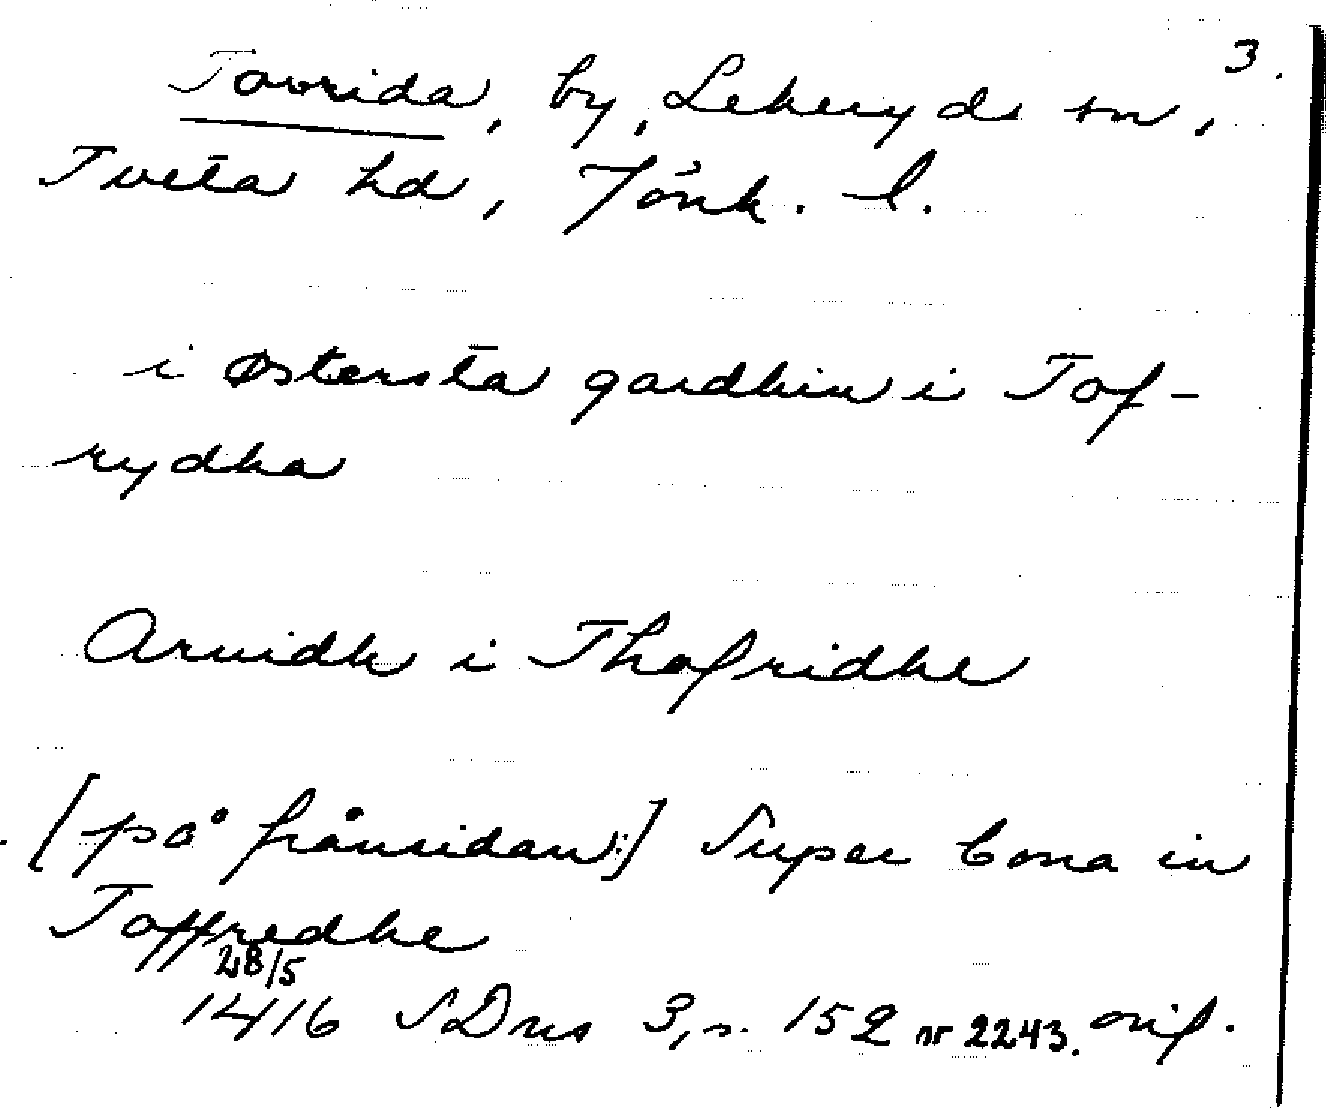 3.
Tovrida, by, Lekeryds sn,
Tveta hd, Jönk. l.
i østersta gardhin i Tof-
rydha
Arvidh i Thofridhe
[på frånsidan:] Super bona in
Toffredhe
28/5
1416 SDns 3, s. 152 nr 2243. orig.